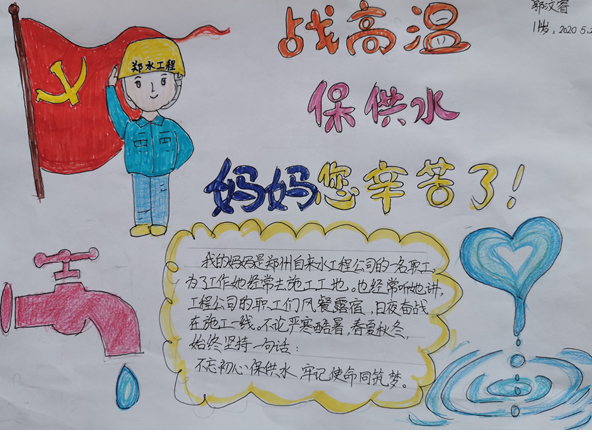 战高温
保供水
妈妈您辛苦了！
郑水工程
1岁，2020.5.2
我的妈妈是郑州自来水工程公司的一名职工，
为了工作她经常去施工工地。也经常听她讲，
工程公司的职工们风餐露宿，日夜奋战
在施工一线。不论严寒酷暑，春夏秋冬，
始终坚持一句话：
不忘初心保供水，牢记使命同筑梦。